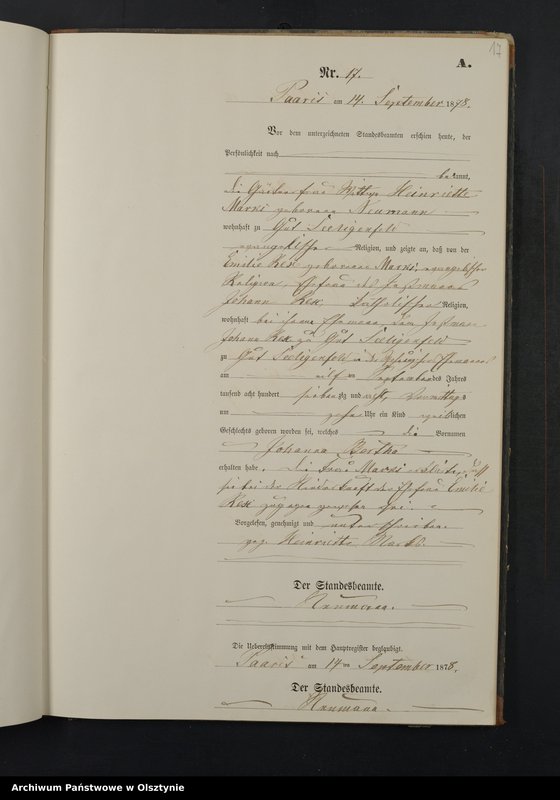 17
A.
Nr. 17.
Paaris am 14. September 1878.
Vor dem unterzeichneten Standesbeamten erschien heute, der
Persönlichkeit nach
bekannt,
die Wittwe Heinriette
Marks geborene Neumann
wohnhaft zu Gut Seeligenfeld
evangelischer Religion, und zeigte an, daß von der
Emilie Rex geborenen Marks, evangelischer
Religion, Ehefrau des
Johann Rex, katholischer Religion,
wohnhaft bei ihrem Ehemann, dem
Johann Rex zu Gut Seeligenfeld
zu Gut Seeligenfeld in der Ehemannes
am elf ten September des Jahres
tausend acht hundert siebenzig und acht, Vormittags
um zehn Uhr ein Kind weiblichen
Geschlechts geboren worden sei, welches die Vornamen
Johanna Bertha
erhalten habe. Die Frau Marks erklärte, daß
sie bei der Niederkunft der Ehefrau Emilie
Rex zugegen gewesen sei.
Vorgelesen, genehmigt und unterschrieben.
gez. Heinriette Marks.
Der Standesbeamte.
Naumann.
Die Uebereinstimmung mit dem Hauptregister beglaubigt.
Paaris am 14 ten September 1878.
Der Standesbeamte.
Naumann
Archiwum Państwowe w Olsztynie